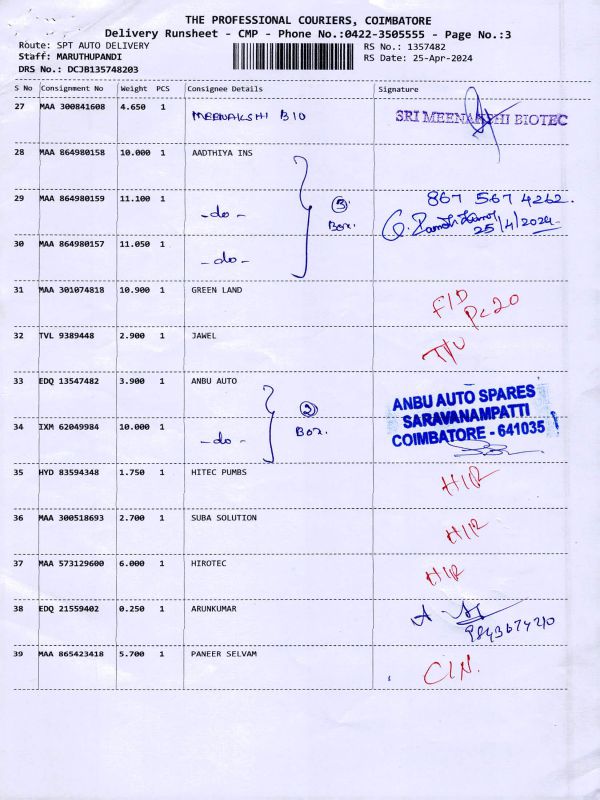 THE PROFESSIONAL COURIERS, COIMBATORE
Delivery Runsheet - CMP - Phone No.:0422-3505555 - Page No.:3
Route: SPT AUTO DELIVERY RS No.: 1357482
Staff: MARUTHUPANDI RS Date: 25-Apr-2024
DRS No.: DCJB135748203
S No Consignment No Weight PCS Consignee Details Signature
27 MAA 300841608 4.650 1 MEENAKSHI BIO SRI MEENAKSHI BIOTEC
28 MAA 864980158 10.000 1 AADTHIYA INS
29 MAA 864980159 11.100 1 -do- 3 Box. 867 567 4262.
25/4/2024
30 MAA 864980157 11.050 1 -do-
31 MAA 301074818 10.900 1 GREEN LAND F/D Pc20
32 TVL 9389448 2.900 1 JAWEL T/U
33 EDQ 13547482 3.900 1 ANBU AUTO 2 Box. ANBU AUTO SPARES
SARAVANAMPATTI
34 IXM 62049984 10.000 1 -do- COIMBATORE - 641035
35 HYD 83594348 1.750 1 HITEC PUMBS HIR
36 MAA 300518693 2.700 1 SUBA SOLUTION HIR
37 MAA 573129600 6.000 1 HIROTEC HIR
38 EDQ 21559402 0.250 1 ARUNKUMAR
9843674210
39 MAA 865423418 5.700 1 PANEER SELVAM C/N.